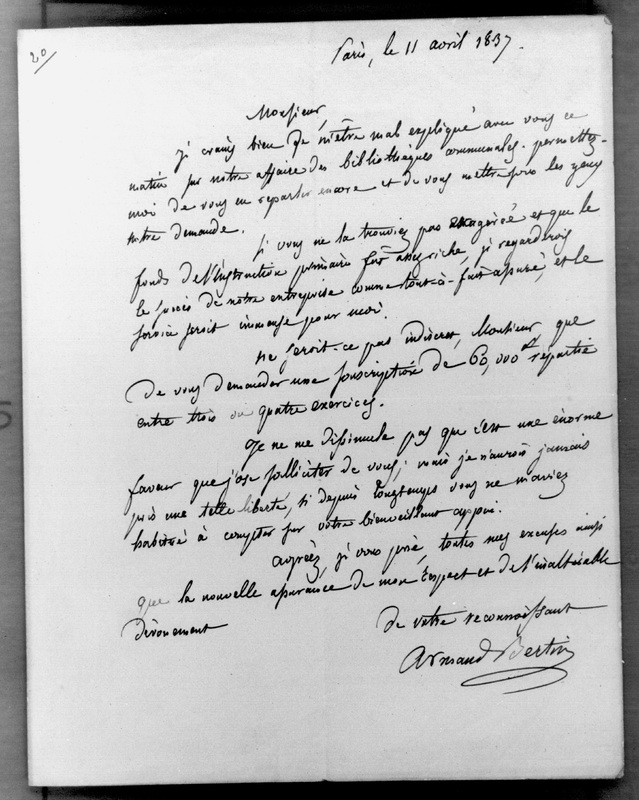 20
Paris, le 11 avril 1837.
Monsieur,
je crains bien de m'être mal expliqué avec vous ce
matin sur notre affaire des bibliothèques communales. permettez-
moi de vous en reparler encore et de vous mettre sous les yeux
notre demande.
Si vous ne la trouviez pas exagérée et que le
fonds de l'instruction primaire fut assez riche, je regarderois
le succès de notre entreprise comme tout-à-fait assuré, et le
service seroit immense pour moi.
ne seroit-ce pas indiscret, Monsieur, que
de vous demander une souscription de 60,000 répartie
entre trois ou quatre exercices.
Je ne me dissimule pas que c'est une énorme
faveur que j'ose solliciter de vous; mais je n'aurois jamais
pris une telle liberté, si depuis longtemps vous ne m'aviez
habitué à compter sur votre bienveillant appui.
agréez, je vous prie, toutes mes excuses ainsi
que la nouvelle assurance de mon respect et de l'inaltérable
dévouement
de votre reconnoissant
Armand Bertin